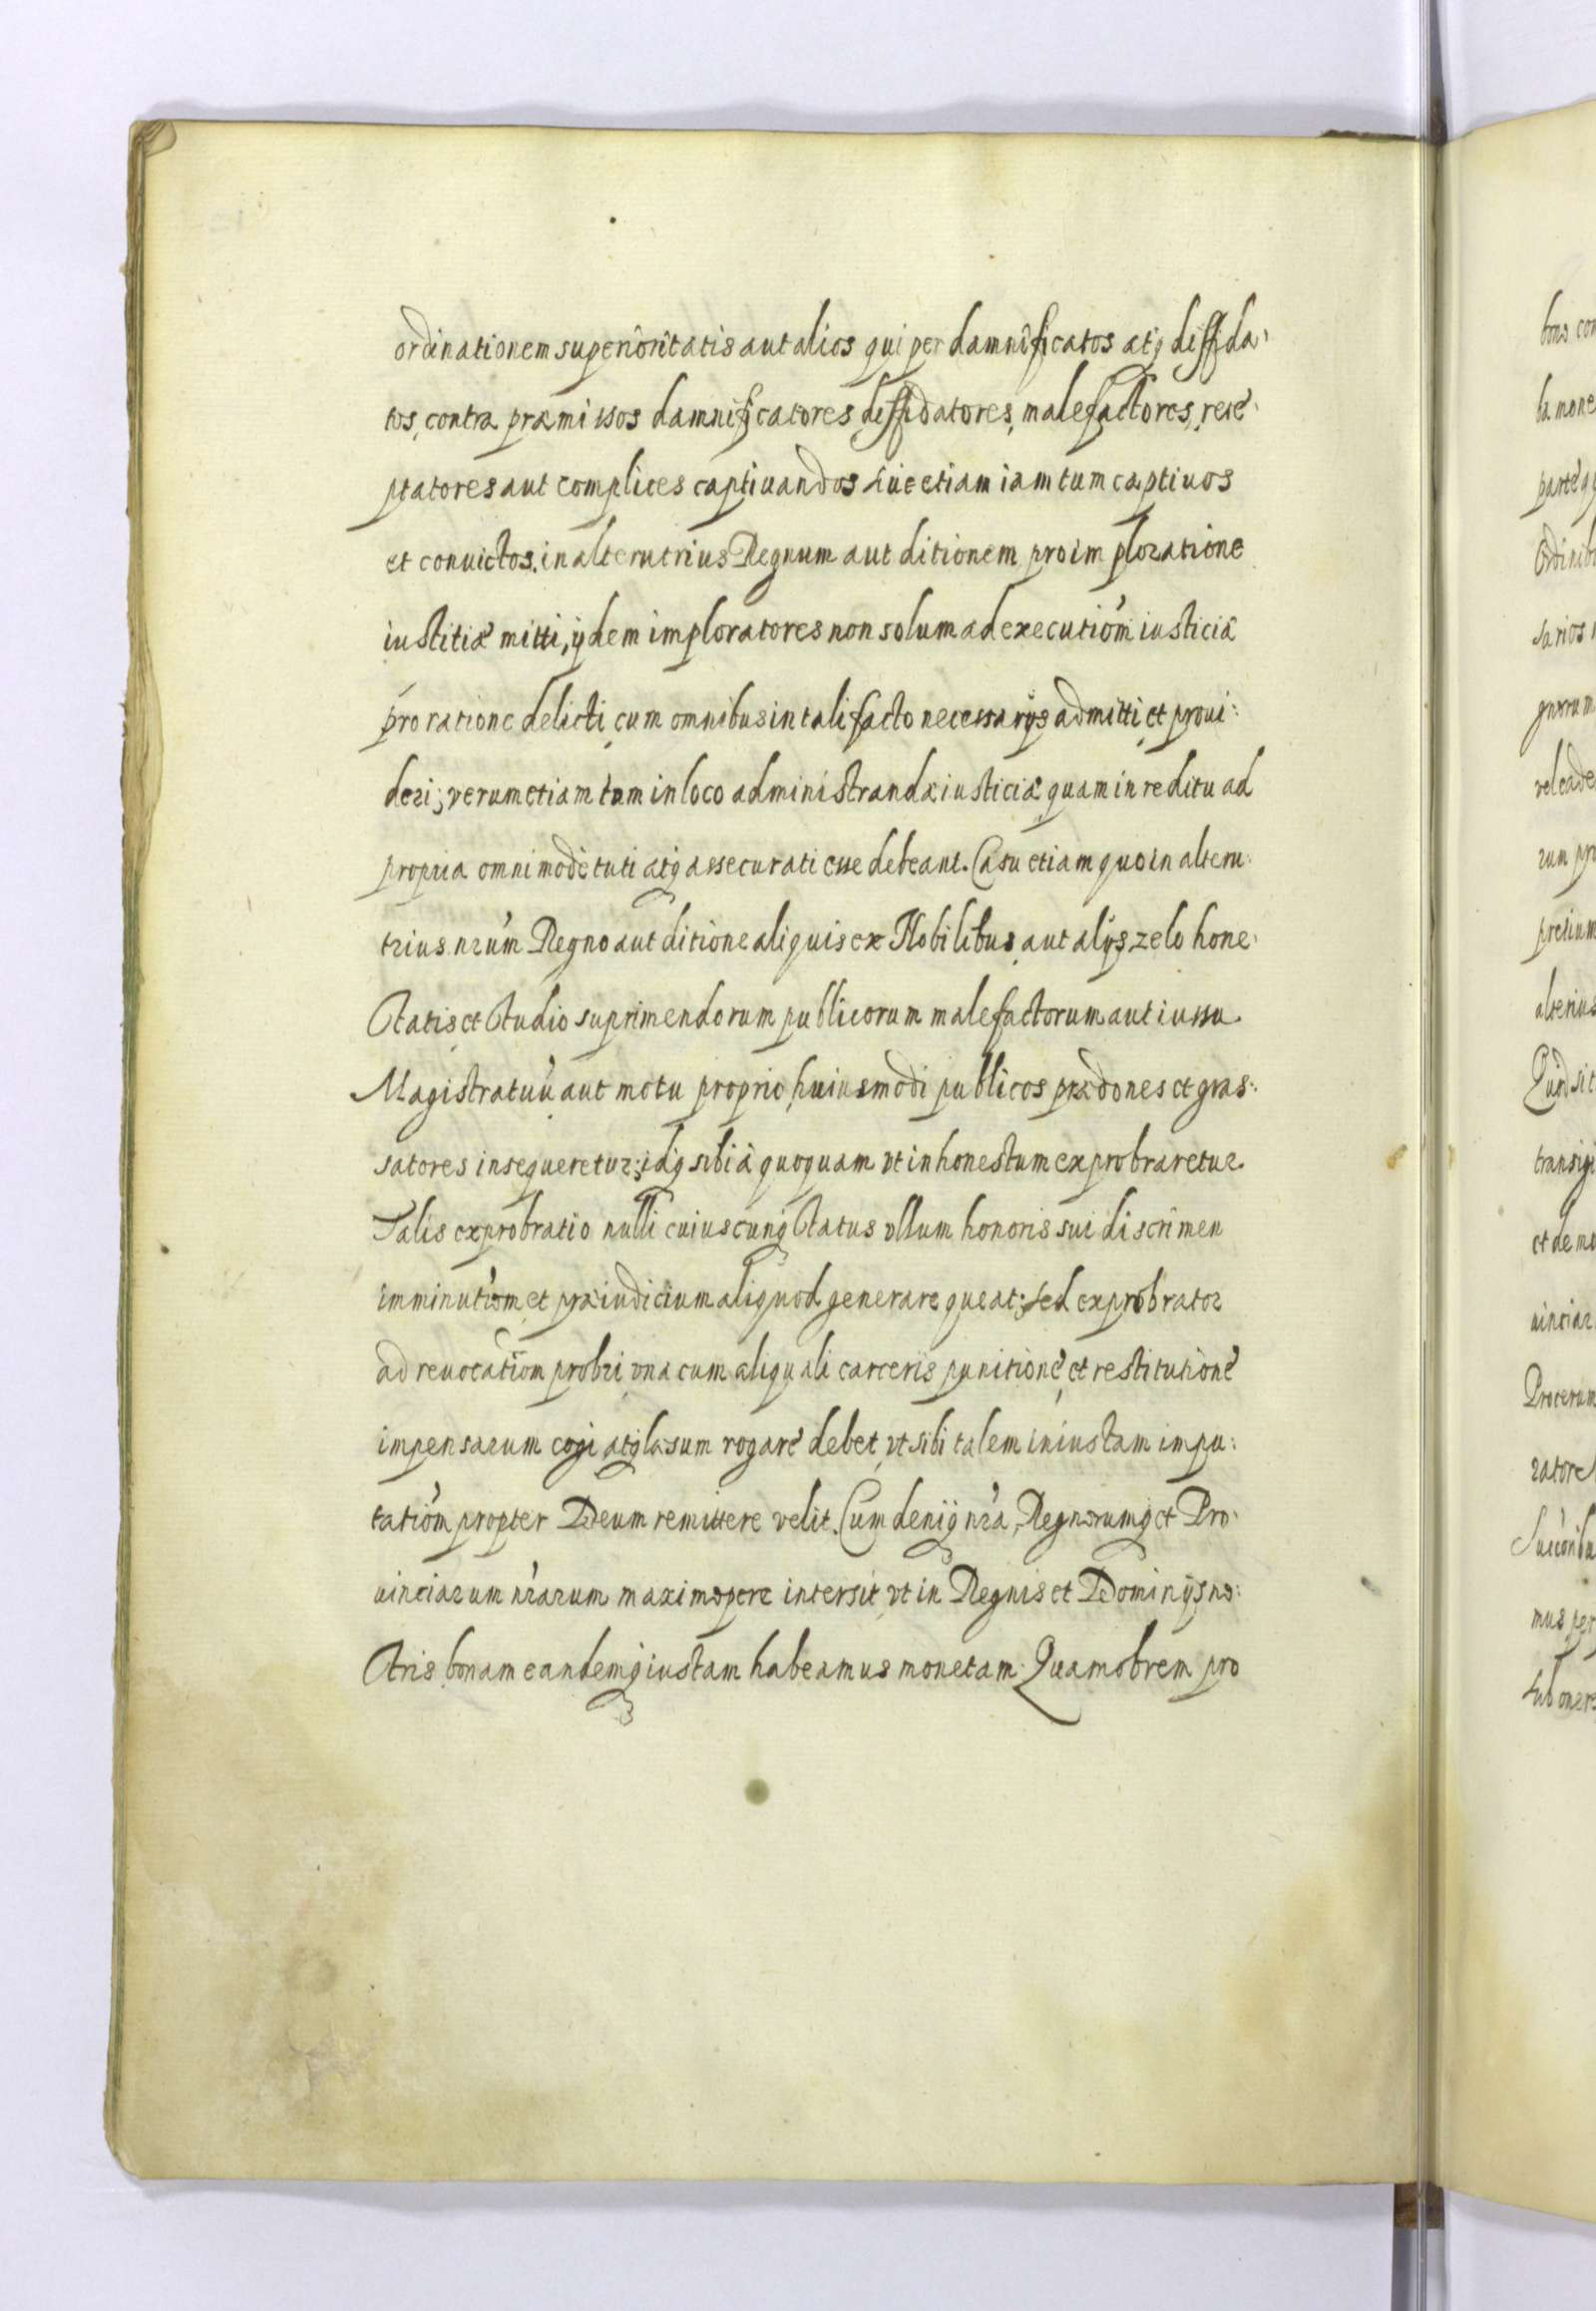 ordinationem superioritatis aut alios qui per damnificatos atq diffida,
tos, contra præmissos damnificatores diffidatores, malefactores, rece,
ptatores aut complices captiuandos siue etiam iam tum captiuos
et conuictos, in alterutrius Regnum aut ditionem pro imploratione
iustitiæ mitti, ijdem imploratores non solum ad executiom iusticiæ
pro ratione delicti, cum omnibus in tali facto necessarijs admitti, et proui:
deri; verum etiam tam in loco administrandæ iusticiæ, quam in reditu ad
propria omnimodè tuti atq assecurati esse debeant. Casu etiam quo in alteru:
trius nrum Regno aut ditione aliquis ex Nobilibus, aut alijs, zelo hone,
statis, et studio suprimendorum publicorum malefactorum aut iussu
Magistratuu, aut motu proprio, huiusmodi publicos prædones et gras:
satores insequeretur; idq sibi à quoquam vt inhonestum exprobraretur.
Talis exprobratio nulli cuiuscunq status vllum honoris sui discrimen
imminutiom et præiudicium aliquod generare queat; sed exprobrator
ad reuocatiom probri, vna cum aliquali carceris punitione, et restitutione
impensarum cogi atq læsum rogare debet, vt sibi talem iniustam impu:
tatiom propter Deum remittere velit. Cum deniq nra, Regnorumq et Pro,
uinciarum nrarum maximopere intersit, vt in Regnis et Dominijs no:
stris bonam eandemq iustam habeamus monetam. Quamobrem pro